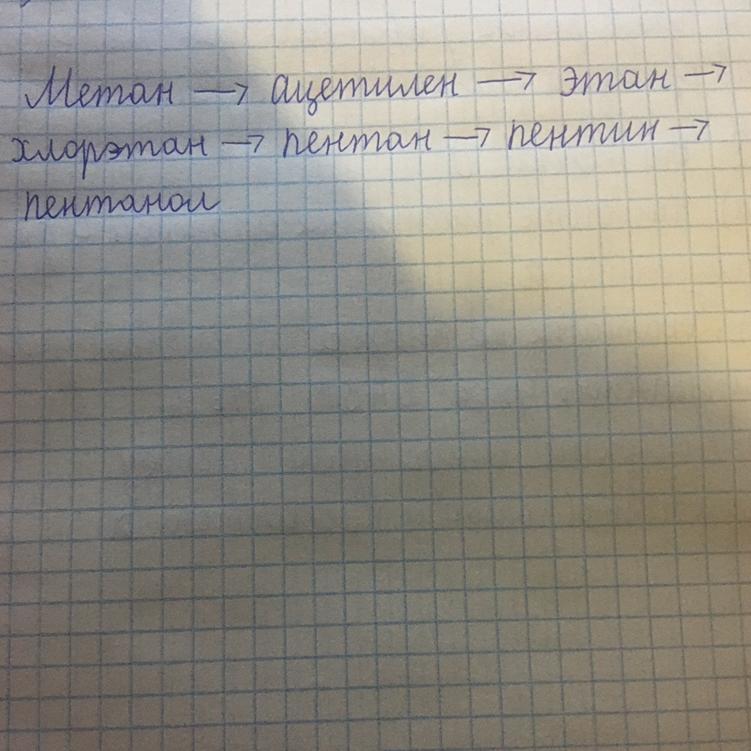 Метан → ацетилен → этан →
хлорэтан → пентан → пентин →
пентанол